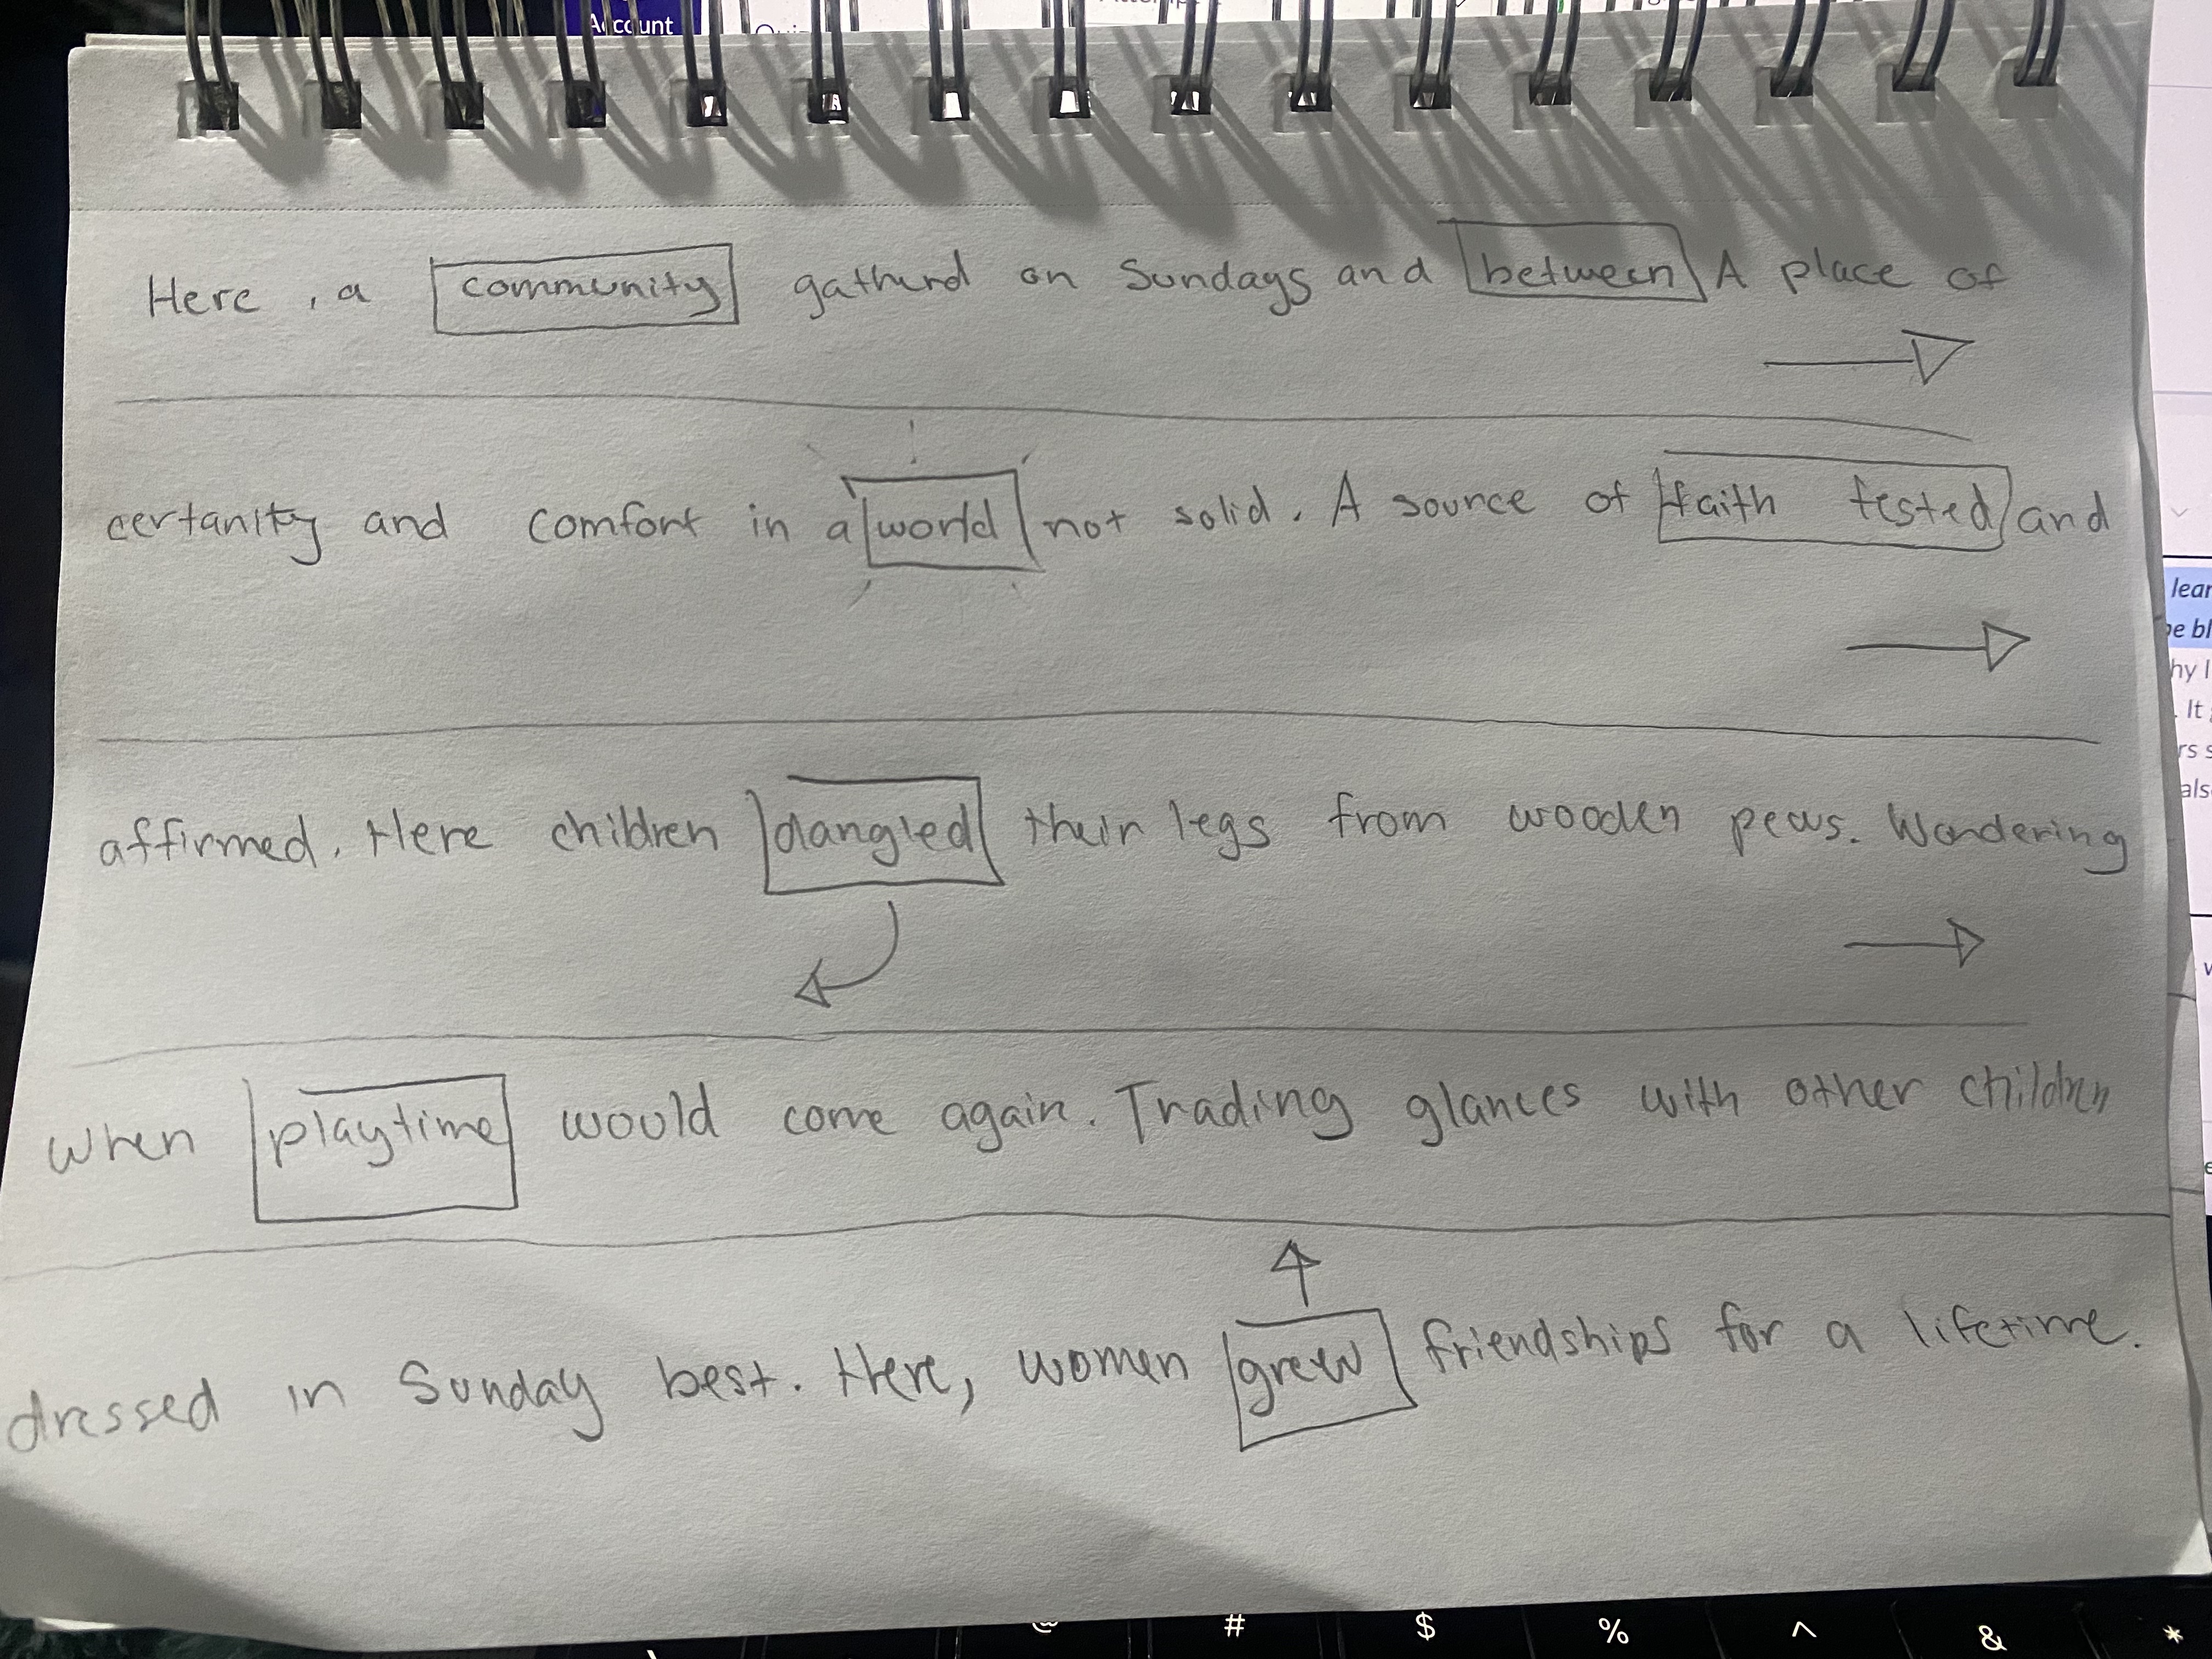 Account
Here, a community gatherd on Sundays and between A place of
certanity and comfort in a world not solid. A source of faith tested and
affirmed. Here children dangled their legs from wooden pews. Wondering
when playtime would come again. Trading glances with other children
dressed in Sunday best. Here, women grew friendships for a lifetime.
lear
be bl
hy I
. It
rs s
als
# $ % ^ & *